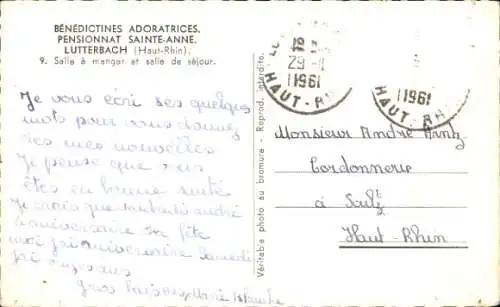 BÉNÉDICTINES ADORATRICES.
PENSIONNAT SAINTE-ANNE.
LUTTERBACH (Haut-Rhin).
9. Salle à manger et salle de séjour.
Je vous écri ses quelques
mots pour vous donnez
des mes nouvelles
Je pense que vous
êtes en bonne santé
Je crois que André
anniversaire fête
moi j'ai anniversaire Samedi
j'ai
gros baisers Marie Blanche
Véritable photo au bromure - Reprod. interdite.
29
1961
HAUT-RHIN
1961
HAUT-RHIN
Monsieur André
Cordonnerie
à Soultz
Haut-Rhin